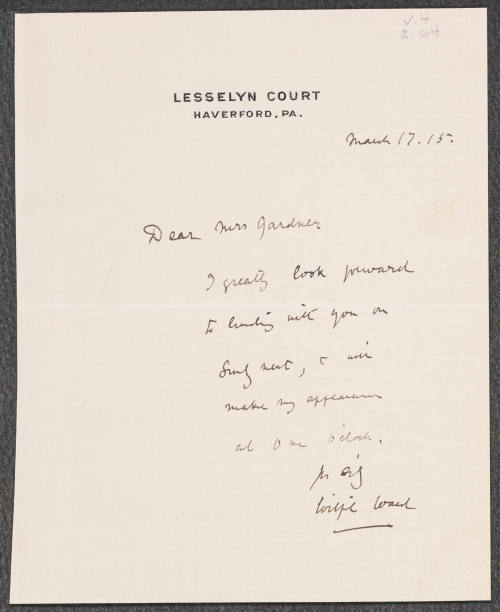 v.4
2.64
LESSELYN COURT
HAVERFORD, PA.
March 17. 15.
Dear Mrs Gardner
I greatly look forward
to lunching with you on
Sunday next, & will
make my appearance
at One o'clock.
Wilfrid Ward